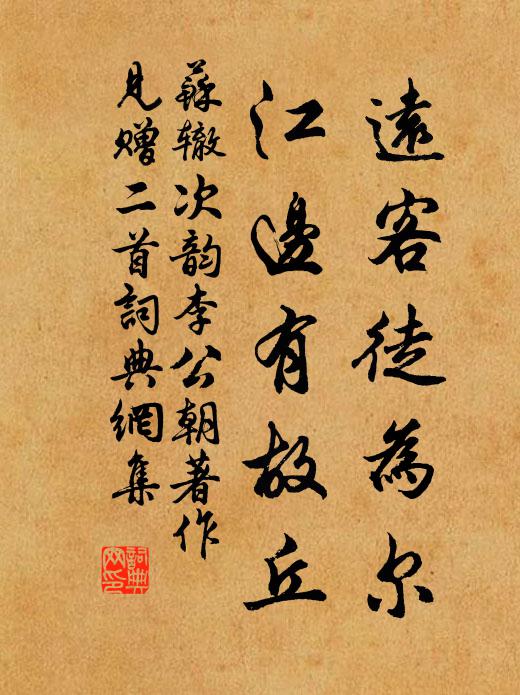 遠客徒為尔
江邊有故丘
蘇辙次韵李公朝著作
見赠二首詞典網集
詞典
网印